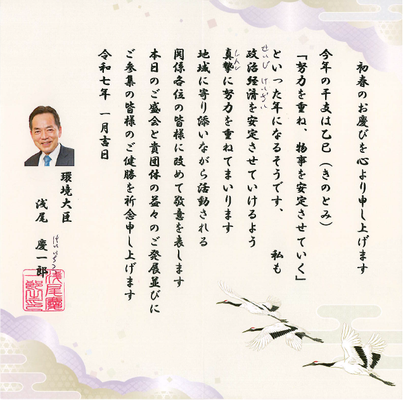 初春のお慶びを心より申し上げます
今年の干支は乙巳（きのとみ）
「努力を重ね、物事を安定させていく」
といった年になるそうです。　私も
政治経済を安定させていけるよう
せいじ けいざい
真摯に努力を重ねてまいります
しんし
地域に寄り添いながら活動される
関係各位の皆様に改めて敬意を表します
本日のご盛会と貴団体の益々のご発展並びに
ご参集の皆様のご健勝を祈念申し上げます
令和七年　一月吉日
環境大臣
浅尾　慶一郎
けいいちろう